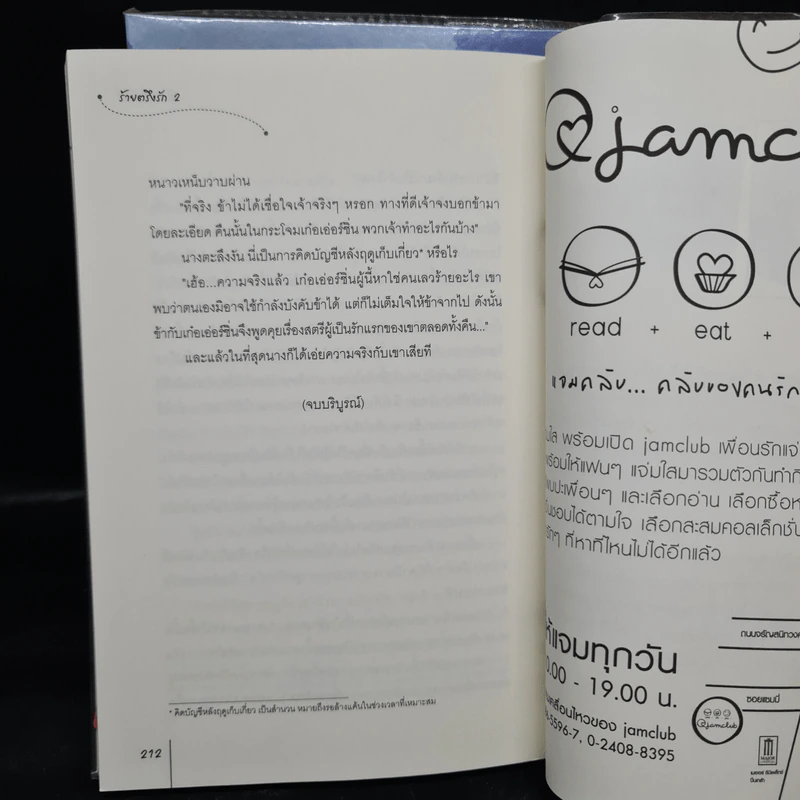 ร้ายตรึงรัก 2
หนาวเหน็บวาบผ่าน
"ที่จริง ข้าไม่ได้เชื่อใจเจ้าจริงๆ หรอก ทางที่ดีเจ้าจงบอกข้ามา
โดยละเอียด คืนนั้นในกระโจมเก๋อเอ่อร์ซิ่น พวกเจ้าทำอะไรกันบ้าง"
นางตะลึงงัน นี่เป็นการคิดบัญชีหลังฤดูเก็บเกี่ยว* หรือไร
"เฮ้อ...ความจริงแล้ว เก๋อเอ่อร์ซิ่นผู้นี้หาใช่คนเลวร้ายอะไร เขา
พบว่าตนเองมิอาจใช้กำลังบังคับข้าได้ แต่ก็ไม่เต็มใจให้ข้าจากไป ดังนั้น
ข้ากับเก๋อเอ่อร์ซิ่นจึงพูดคุยเรื่องสตรีผู้เป็นรักแรกของเขาตลอดทั้งคืน..."
และแล้วในที่สุดนางก็ได้เอ่ยความจริงกับเขาเสียที
(จบบริบูรณ์)
* คิดบัญชีหลังฤดูเก็บเกี่ยว เป็นสำนวน หมายถึงรอล้างแค้นในช่วงเวลาที่เหมาะสม
212
jamc
read + eat +
แจมคลับ... คลับของคนรัก
พร้อมเปิด jamclub เพื่อนรักแจ่
พร้อมให้แฟนๆ แจ่มใสมารวมตัวกันทำกิ
เพื่อนๆ และเลือกอ่าน เลือกซื้อห
ชอบได้ตามใจ เลือกสะสมคอลเล็กชั่น
ที่หาที่ไหนไม่ได้อีกแล้ว
ให้แจมทุกวัน
0.00 - 19.00 น.
เคลื่อนไหวของ jamclub
5596-7, 0-2408-8395
ถนนจรัญสนิทวงศ์
ซอยแซมมี่
jamclub
MAJOR
เมเจอร์ ซีนีเพล็กซ์
ปิ่นเกล้า